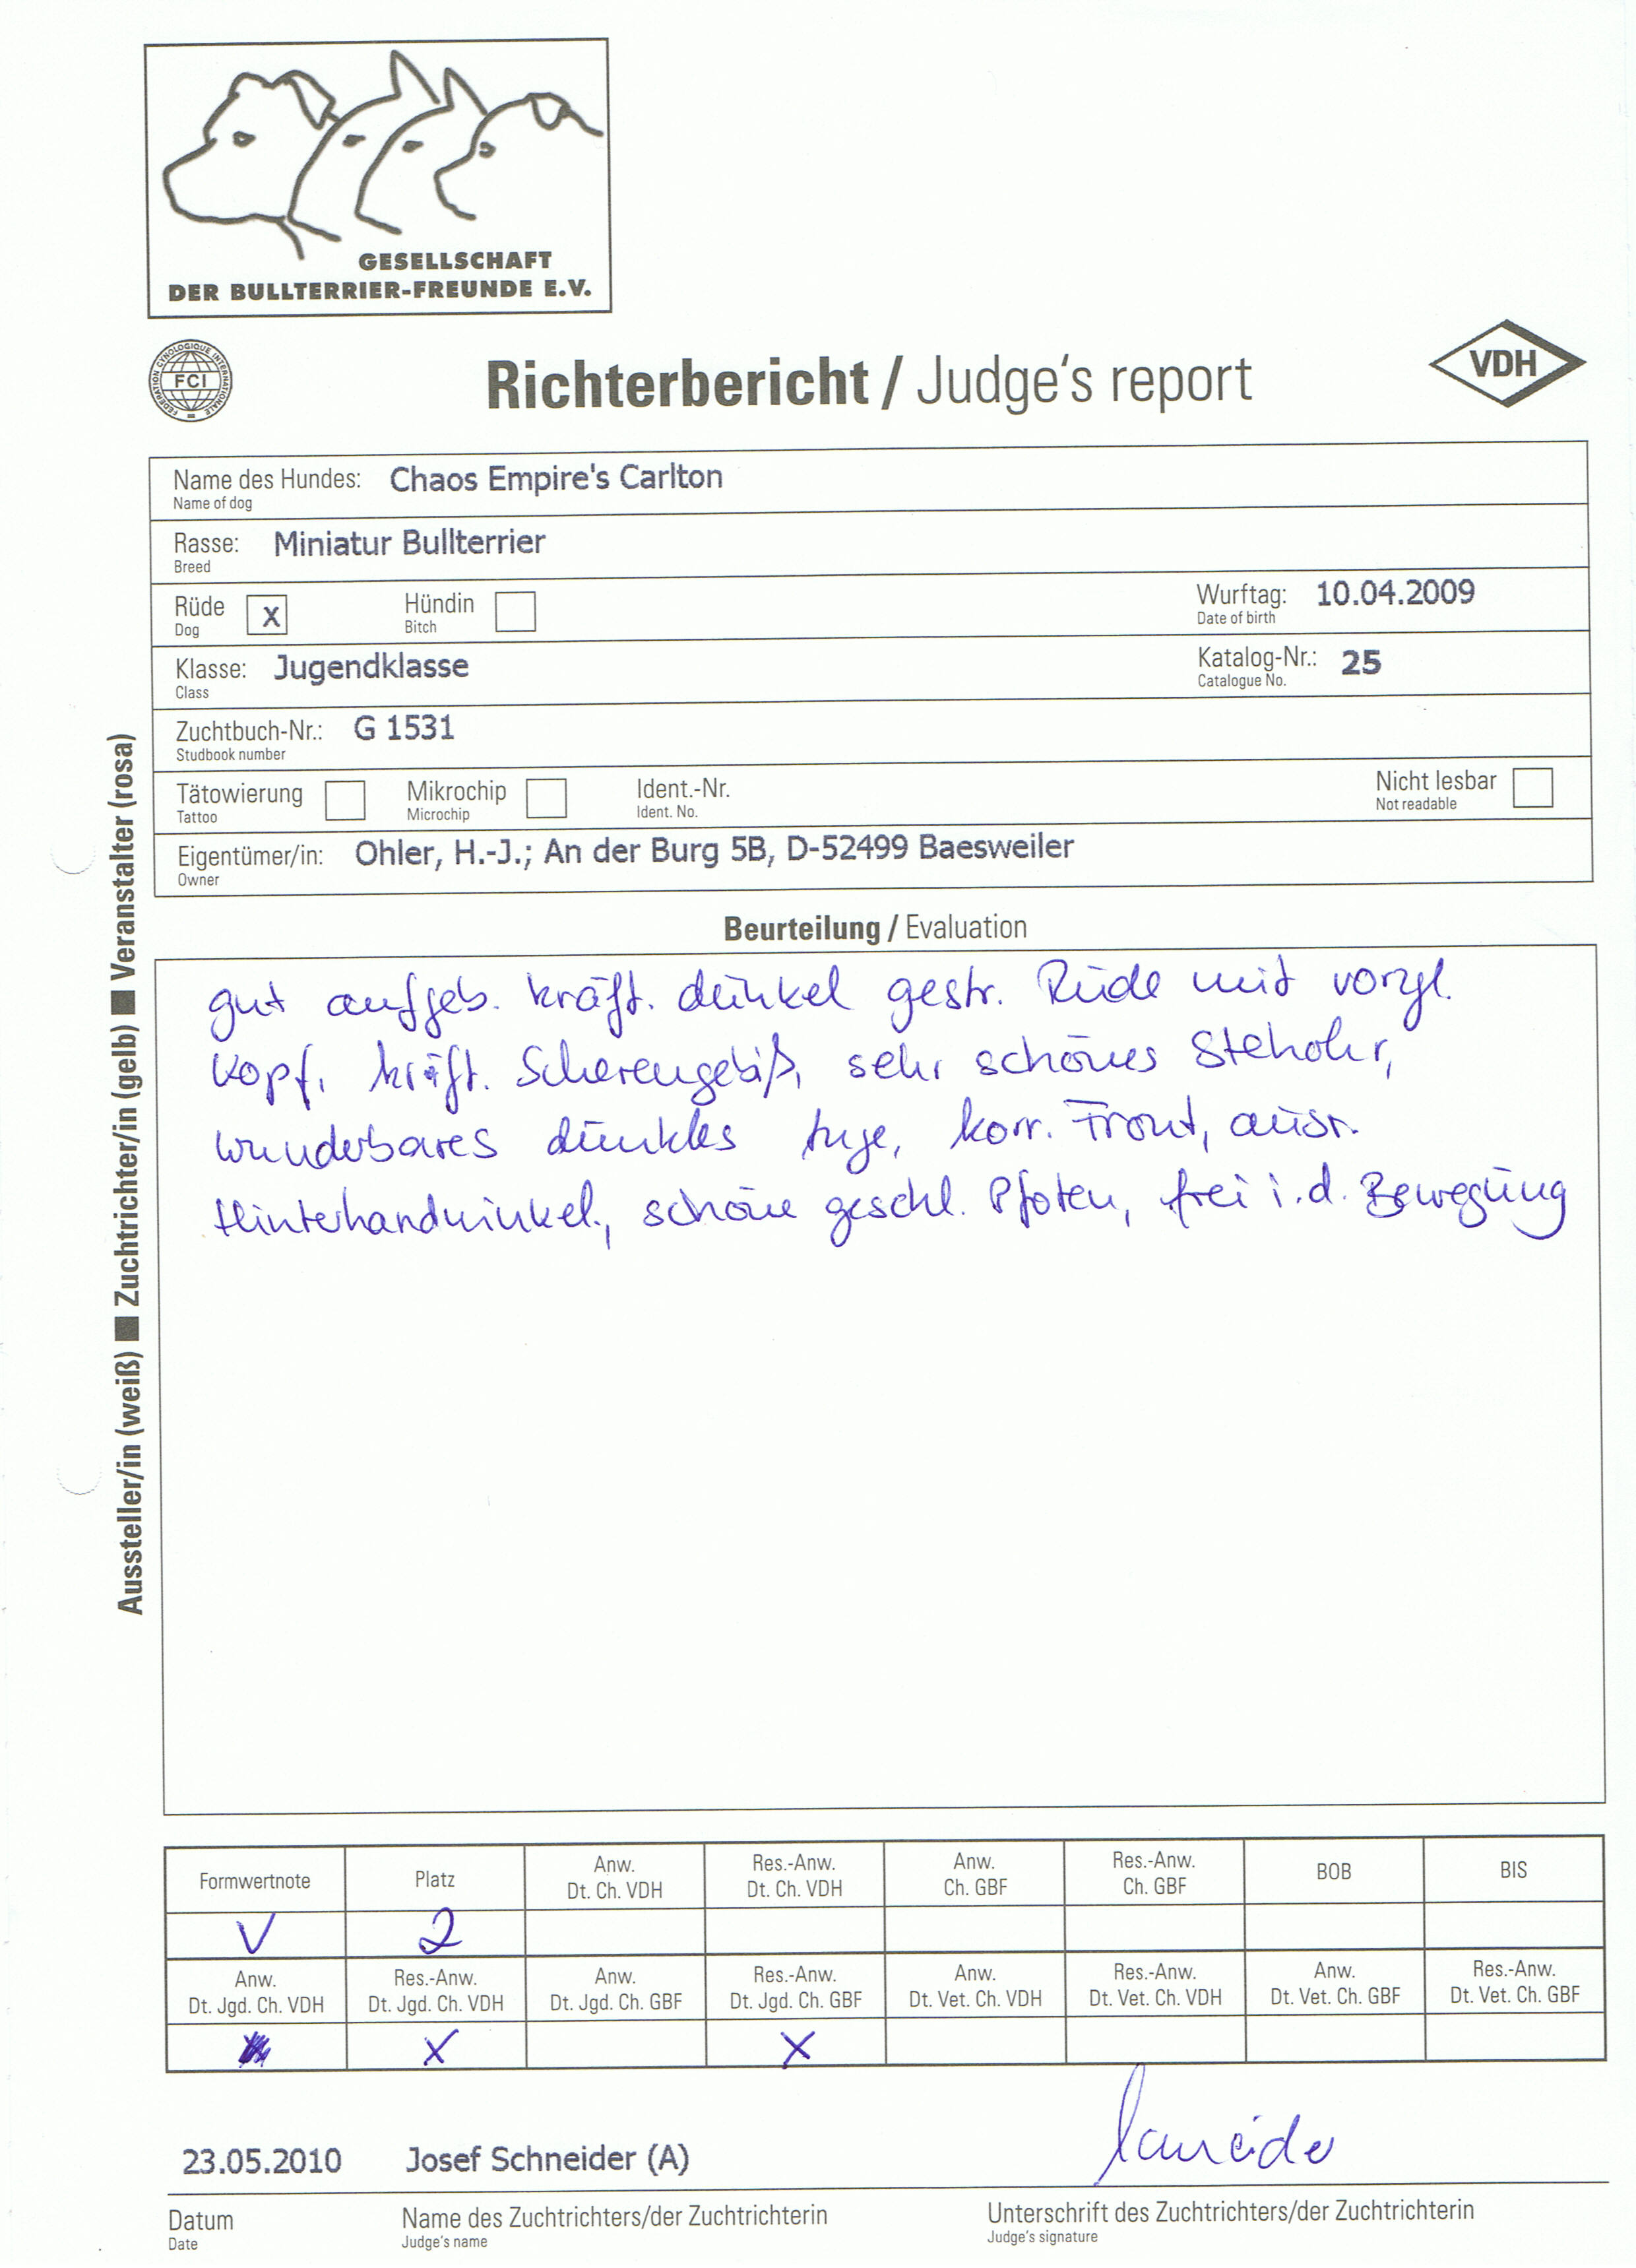 GESELLSCHAFT
DER BULLTERRIER-FREUNDE E.V.
FEDERATION CYNOLOGIQUE INTERNATIONALE
FCI
Richterbericht / Judge's report
VDH
Name des Hundes: Chaos Empire's Carlton
Name of dog
Rasse: Miniatur Bullterrier
Breed
Rüde x Hündin Wurftag: 10.04.2009
Dog Bitch Date of birth
Klasse: Jugendklasse Katalog-Nr.: 25
Class Catalogue No.
Zuchtbuch-Nr.: G 1531
Studbook number
Tätowierung Mikrochip Ident.-Nr. Nicht lesbar
Tattoo Microchip Ident. No. Not readable
Eigentümer/in: Ohler, H.-J.; An der Burg 5B, D-52499 Baesweiler
Owner
Aussteller/in (weiß) ■ Zuchtrichter/in (gelb) ■ Veranstalter (rosa)
Beurteilung / Evaluation
gut aufgeb. kräft. dunkel gestr. Rüde mit vorzgl.
Kopf, kräft. Scherengebiß, sehr schönes Stehohr,
wunderbares dunkles Auge, korr. Front, ausr.
Hinterhandwinkel., schöne geschl. Pfoten, frei i. d. Bewegung
Formwertnote Platz Anw. Res.-Anw. Anw. Res.-Anw. BOB BIS
Dt. Ch. VDH Dt. Ch. VDH Ch. GBF Ch. GBF
V 2
Anw. Res.-Anw. Anw. Res.-Anw. Anw. Res.-Anw. Anw. Res.-Anw.
Dt. Jgd. Ch. VDH Dt. Jgd. Ch. VDH Dt. Jgd. Ch. GBF Dt. Jgd. Ch. GBF Dt. Vet. Ch. VDH Dt. Vet. Ch. VDH Dt. Vet. Ch. GBF Dt. Vet. Ch. GBF
X X
23.05.2010 Josef Schneider (A)
Datum Name des Zuchtrichters/der Zuchtrichterin Unterschrift des Zuchtrichters/der Zuchtrichterin
Date Judge's name Judge's signature